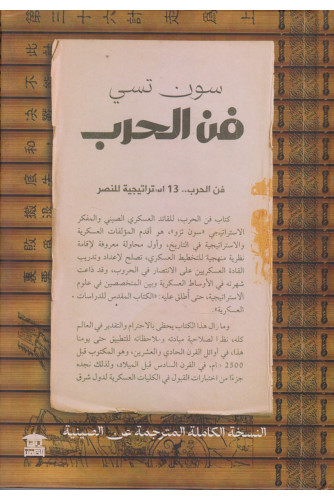 第三十六計 走為上
此
不
決
和
底
撤
退
敗
裏
سون تسي
فن الحرب
فن الحرب.. 13 استراتيجية للنصر
كتاب فن الحرب، للقائد العسكري الصيني والمفكر
الاستراتيجي «سون تزو»، هو أقدم المؤلفات العسكرية
والاستراتيجية في التاريخ، وأول محاولة معروفة لإقامة
نظرية منهجية للتخطيط العسكري، تصلح لإعداد وتدريب
القادة العسكريين على الانتصار في الحروب، وقد ذاعت
شهرته في الأوساط العسكرية وبين المتخصصين في علوم
الاستراتيجية، حتى أُطلق عليه: «الكتاب المقدس للدراسات
العسكرية».
وما زال هذا الكتاب يحظى بالاحترام والتقدير في العالم
كله، نظرًا لصلاحية مبادئه وملاحظاته للتطبيق حتى يومنا
هذا، في أوائل القرن الحادي والعشرين، وهو المكتوب قبل
2500 عام، في القرن السادس قبل الميلاد، ولذلك نجده
جزءًا من اختبارات القبول في الكليات العسكرية لدول شرق
النسخة الكاملة المترجمة عن الصينية